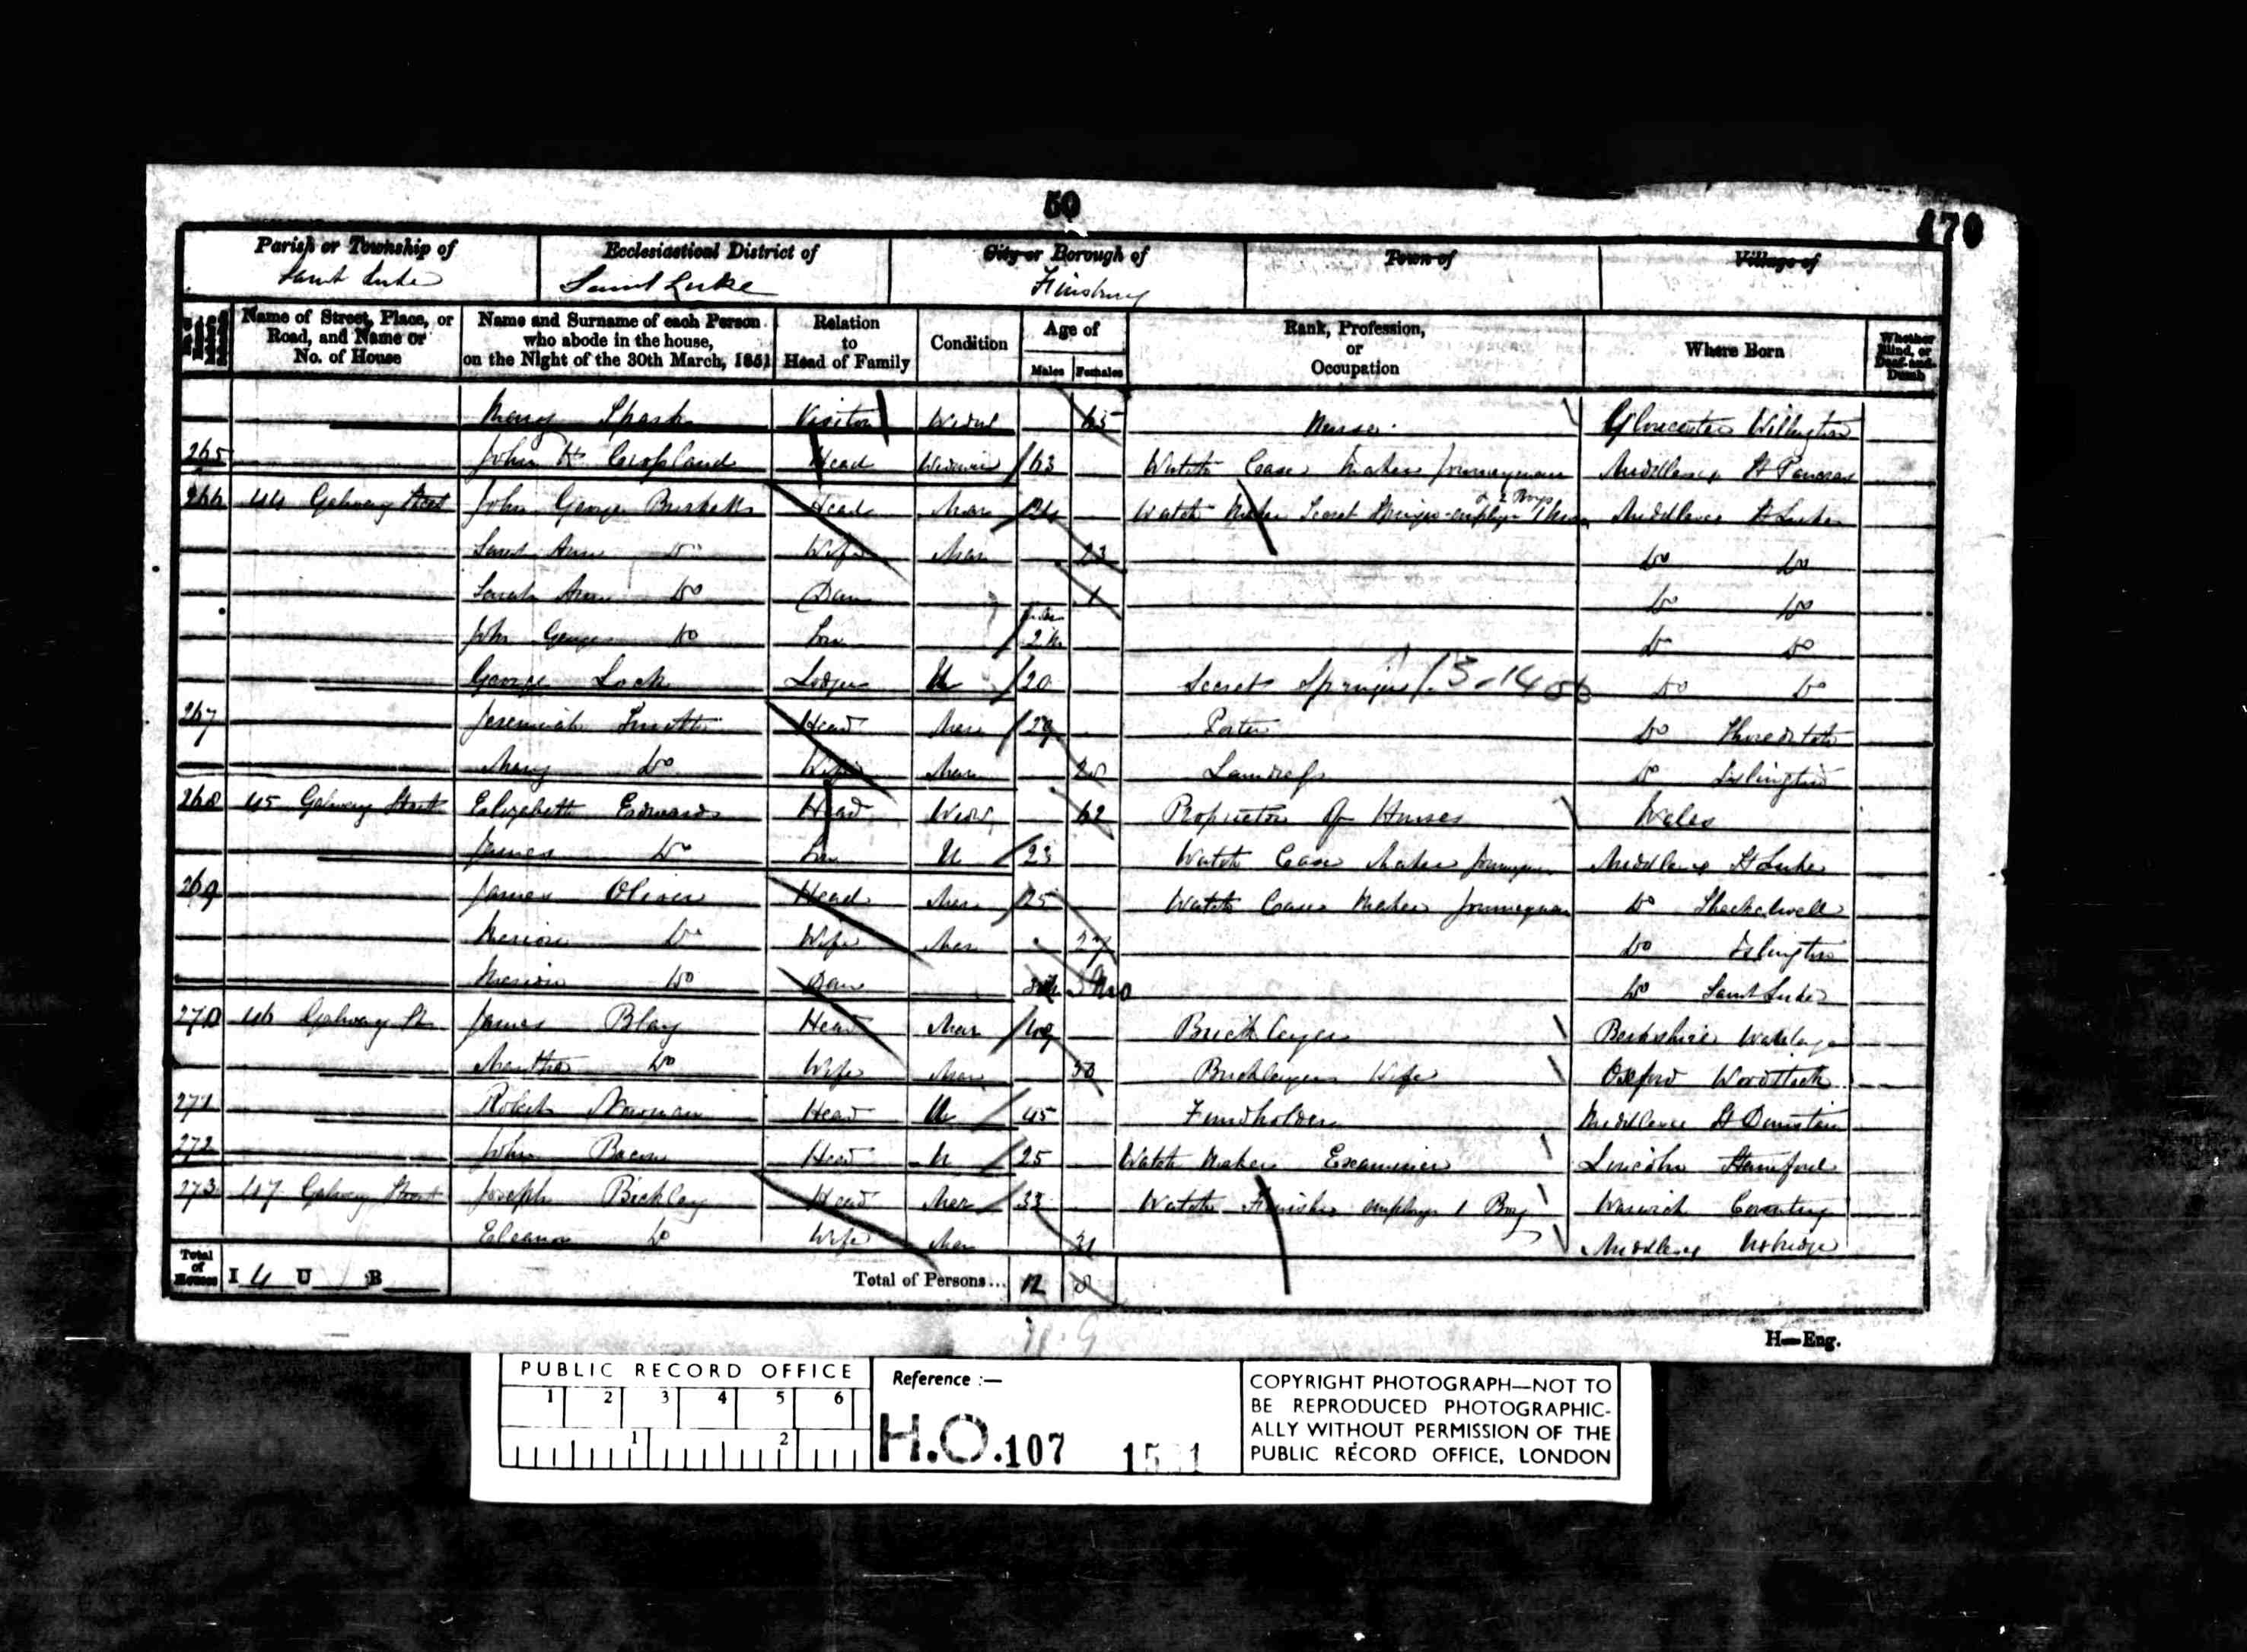 50
170
Parish or Township of
Saint Luke
Ecclesiastical District of
Saint Luke
City or Borough of
Finsbury
Town of
Village of
Name of Street, Place, or Road, and Name or No. of House
Name and Surname of each Person who abode in the house, on the Night of the 30th March, 1851
Relation to Head of Family
Condition
Age of
Males Females
Rank, Profession, or Occupation
Where Born
Whether Blind, or Deaf-and-Dumb
Mary Visitor Widow 65 Nurse Gloucester
265 John H Cropland Head Widower 63 Watch Case Maker Journeyman Middlesex St Pancras
266 44 Galway Street John George Head Mar Watch Maker Secret Springer employs 1 Man & 2 Boys Middlesex St Luke
Sarah Ann Do Wife Mar 23 Do Do
Sarah Ann Do Dau 1 Do Do
John George Do Son 2 M Do Do
George Lock Lodger U 20 Secret Springer Do Do
267 Jeremiah Smith Head Mar 29 Porter Do Shoreditch
Mary Do Wife Mar Laundress Do Islington
268 45 Galway Street Elizabeth Edwards Head Widw 62 Proprietor of Houses Wales
James Do Son U 23 Watch Case Maker Journeyman Middlesex St Luke
269 James Oliver Head Mar 25 Watch Case Maker Journeyman Do Shacklewell
Marion Do Wife Mar 27 Do Islington
Marion Do Dau Mo Do Saint Luke
270 46 Galway St James Blay Head Mar 49 Bricklayer Berkshire
Martha Do Wife Mar 50 Bricklayers Wife Oxford Woodstock
271 Robert Newman Head U 45 Fundholder Middlesex St Dunstan
272 John Bacon Head U 25 Watch Maker Examiner Lincoln Stamford
273 47 Galway Street Joseph Bickley Head Mar 33 Watch Finisher employs 1 Boy Warwick Coventry
Eleanor Do Wife Mar 31 Middlesex Uxbridge
Total of Houses I 4 U B Total of Persons... 12 8
H—Eng.
PUBLIC RECORD OFFICE
1 2 3 4 5 6
1 2
Reference :—
H.O. 107
COPYRIGHT PHOTOGRAPH—NOT TO
BE REPRODUCED PHOTOGRAPHIC-
ALLY WITHOUT PERMISSION OF THE
PUBLIC RECORD OFFICE, LONDON